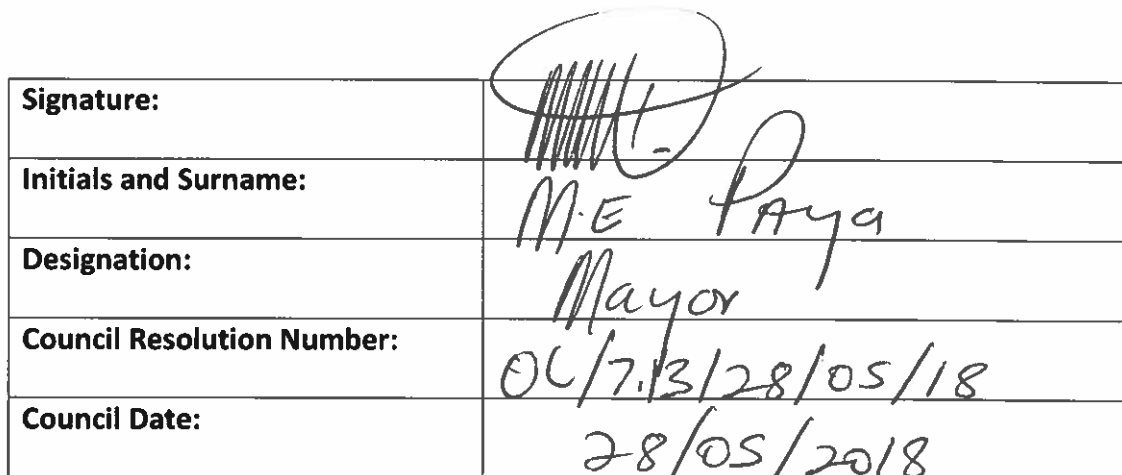 Signature:
Initials and Surname: M.E Paya
Designation: Mayor
Council Resolution Number: OC/7.13/28/05/18
Council Date: 28/05/2018